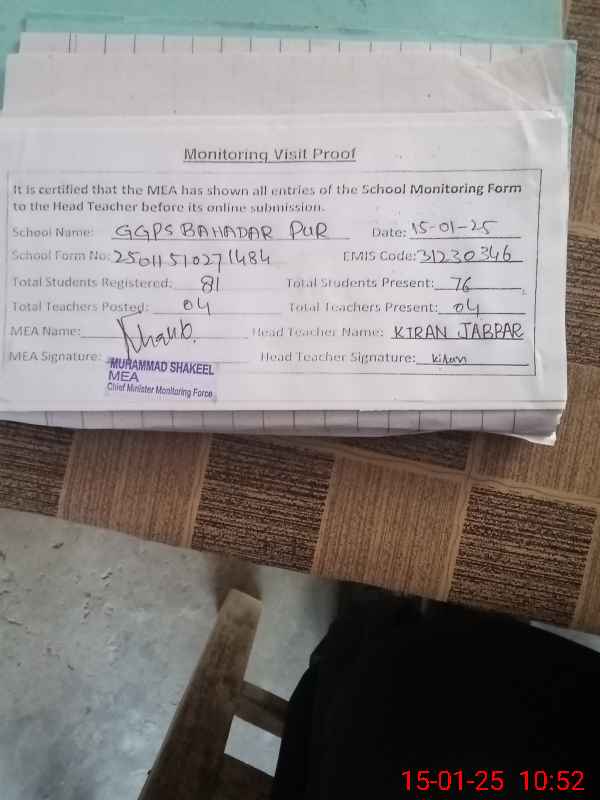 Monitoring Visit Proof
It is certified that the MEA has shown all entries of the School Monitoring Form
to the Head Teacher before its online submission.
School Name: GGPS BAHADAR PUR Date: 15-01-25
School Form No: 25011510271484 EMIS Code: 31230346
Total Students Registered: 81 Total Students Present: 76
Total Teachers Posted: 04 Total Teachers Present: 04
MEA Name: Head Teacher Name: KIRAN JABBAR
MEA Signature: Head Teacher Signature: Kiran
MUHAMMAD SHAKEEL
MEA
Chief Minister Monitoring Force
15-01-25 10:52